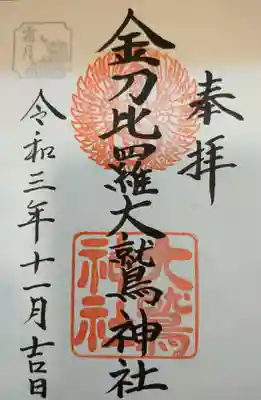 奉拝
金刀比羅大鷲神社
大鷲
神社
令和三年十一月吉日
霜月